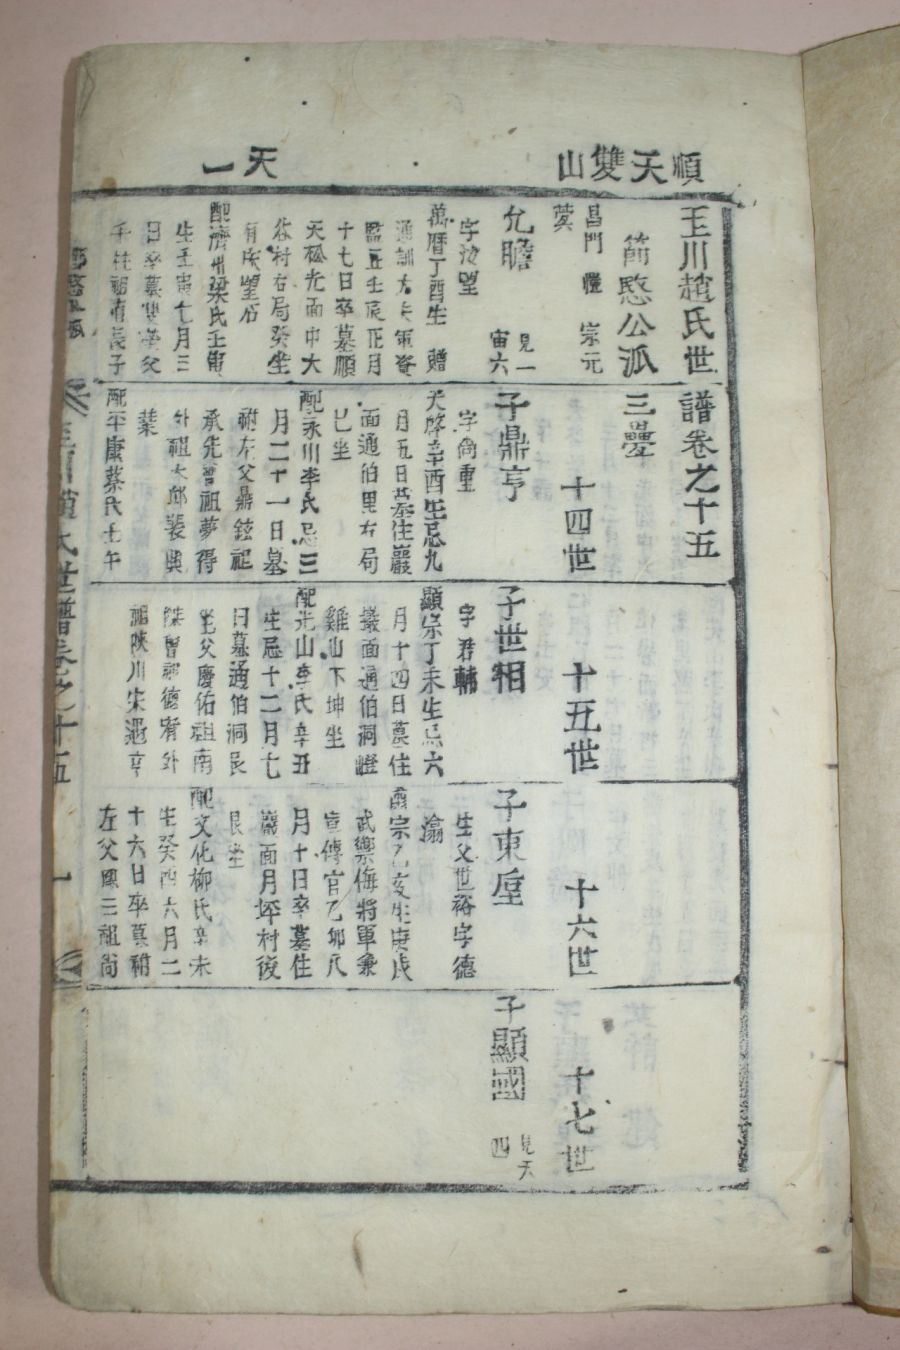 順天雙山
天一
玉川趙氏世譜卷之十五
節愍公派
三疊
昌門
宗元
允瞻
見一
宙六
字汝望
萬曆丁酉生 贈
通訓大夫軍資
監正壬辰正月
十七日卒墓順
天松光面中大
谷村右局癸坐
有床望石
配濟州梁氏壬寅
生壬寅七月三
日卒墓雙塋父
千柱祖有長子
十四世
子鼎亨
字尙重
天啓辛酉生忌九
月五日墓住巖
面通伯里右局
巳坐
配永川李氏忌三
月二十一日墓
祔左父鼎鉉祖
承先曾祖夢得
外祖大邱裵興
業
配平康蔡氏士午
十五世
子世相
字君輔
顯宗丁未生忌六
月十四日墓住
巖面通伯洞燈
雞山下坤坐
配光山李氏辛丑
生忌十二月七
日墓通伯洞艮
坐父慶佑祖南
傑曾祖德宥外
祖陝川宋遇亨
十六世
子東垕
生父世裕字德
瀹
肅宗乙亥生庚戌
武禦侮將軍兼
宣傳官乙卯八
月十日卒墓住
巖面月坪村後
艮坐
配文化柳氏辛未
生癸酉六月二
十六日卒墓祔
左父興三祖尙
十七世
子顯國
見天
四
玉川趙氏世譜卷之十五
一